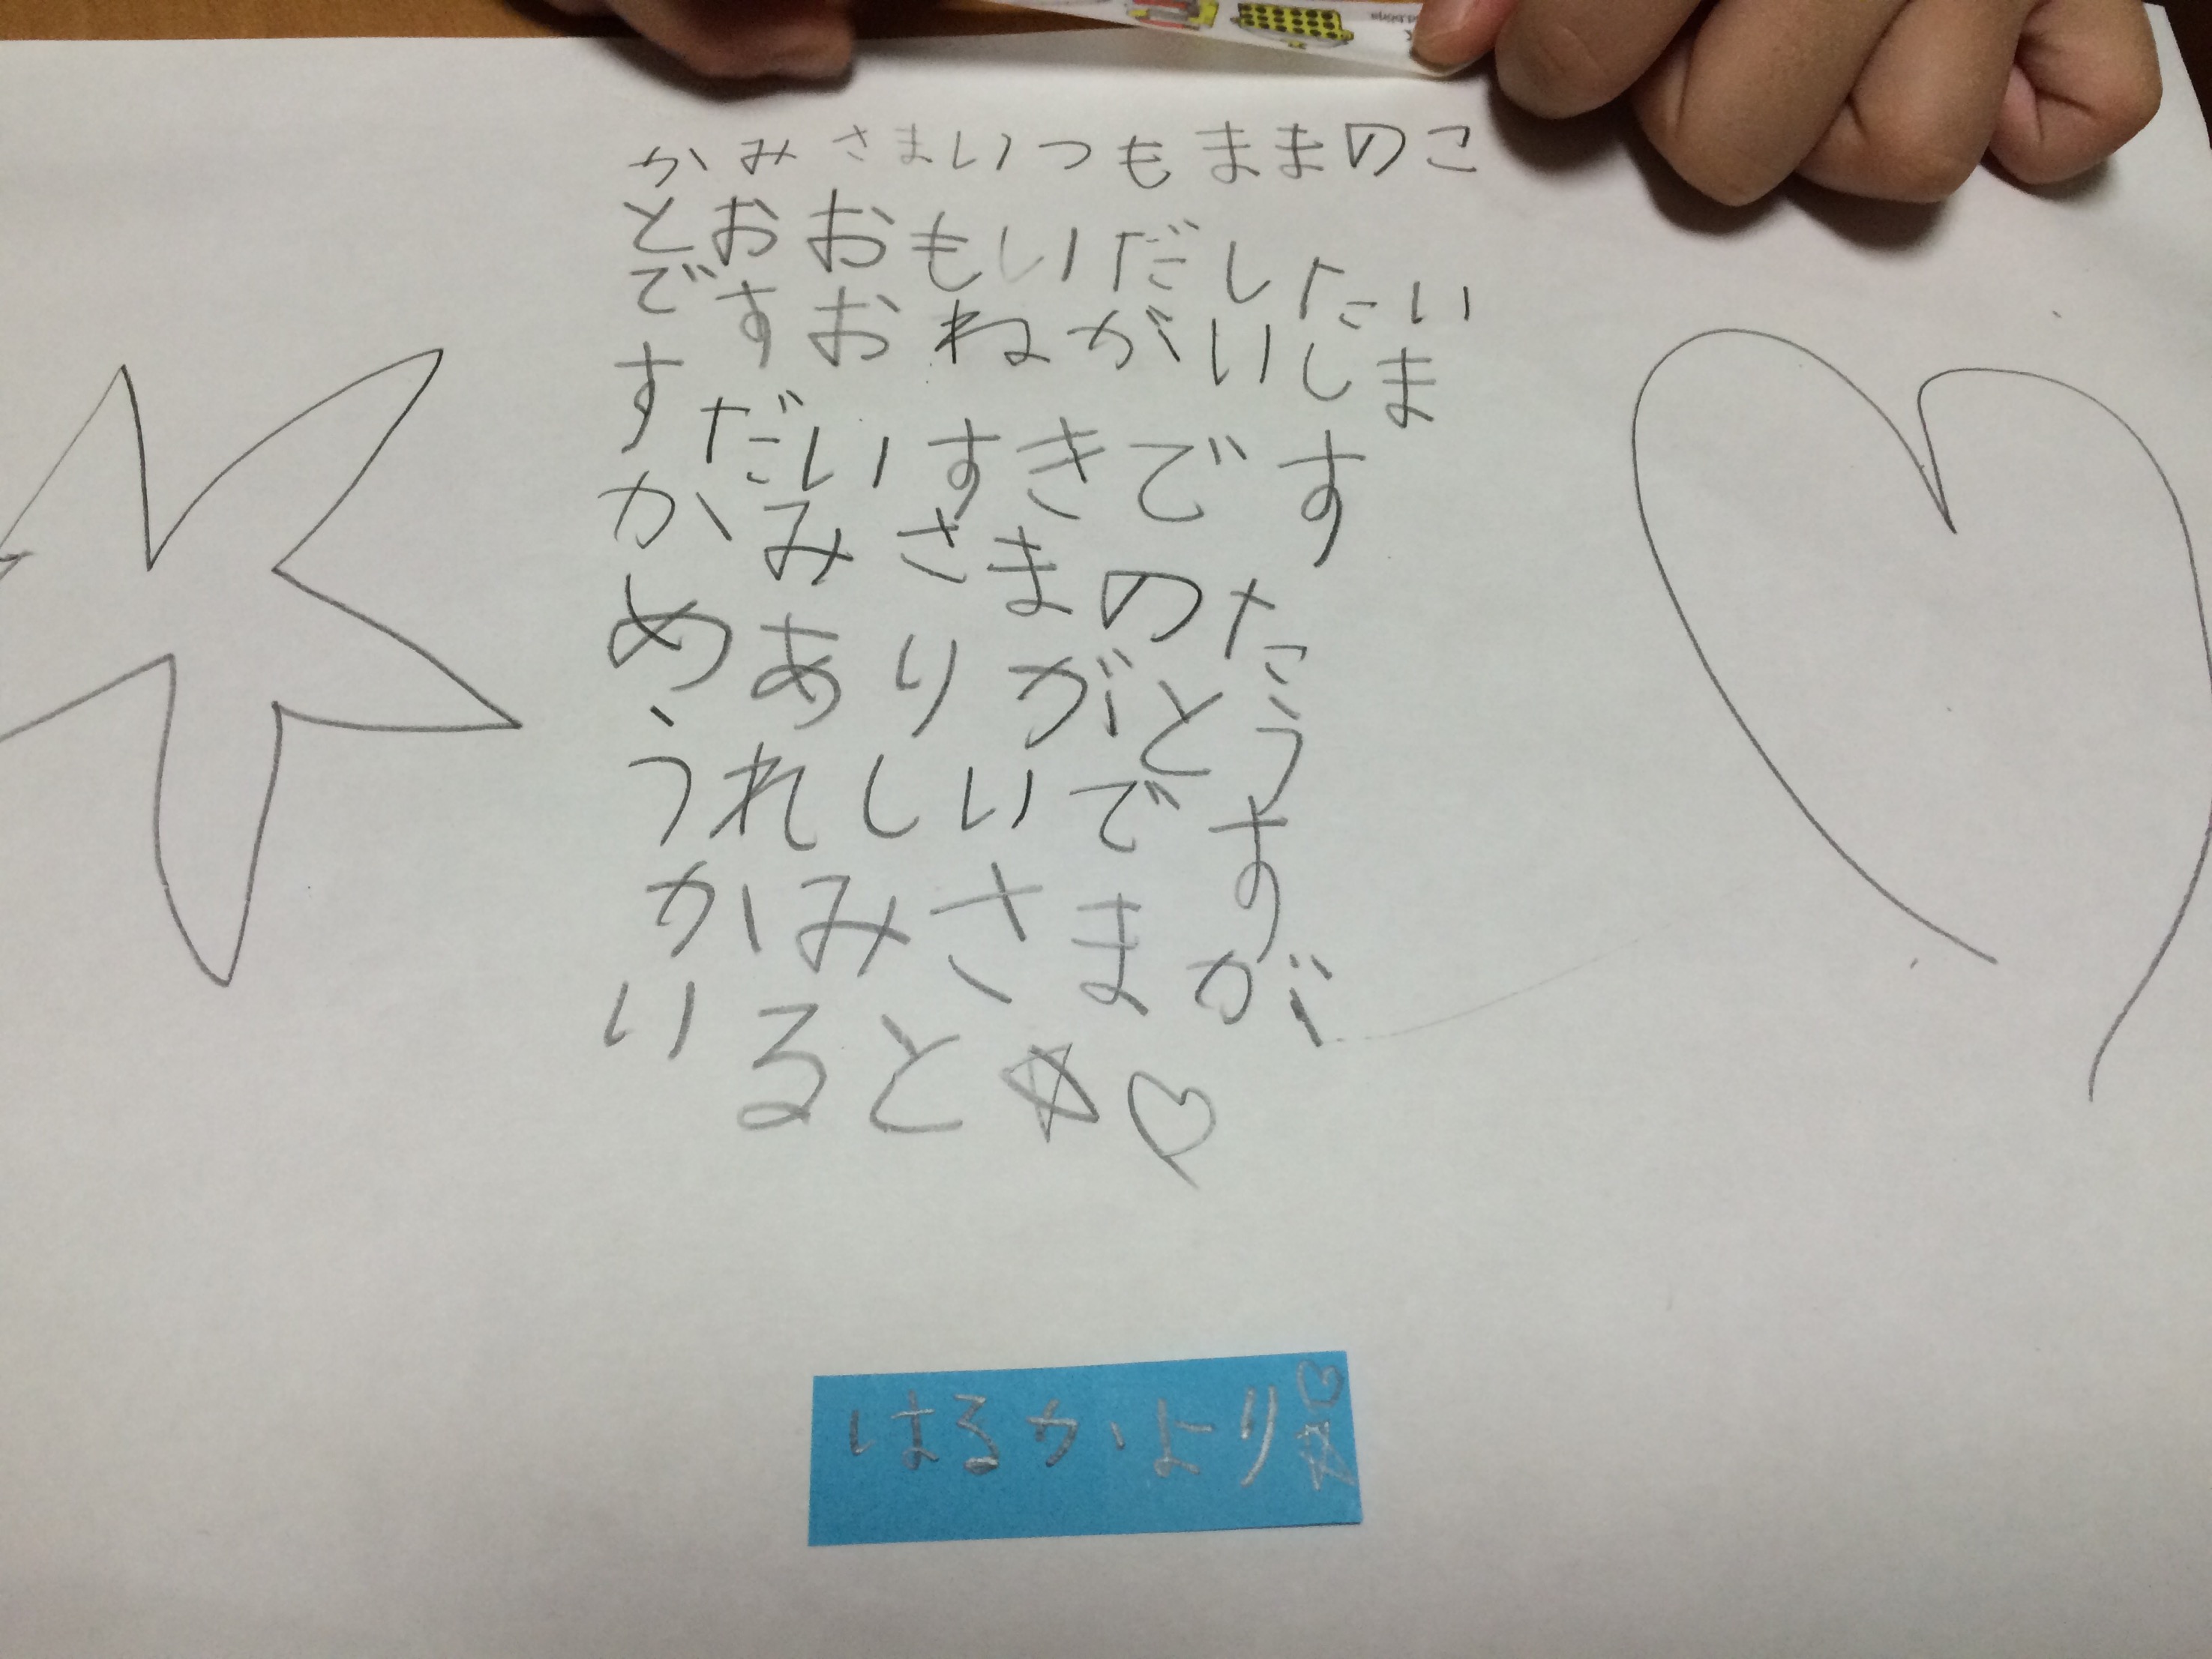 かみさまいつもままのこ
とおおもいだしたい
ですおねがいしま
すだいすきです
かみさまのた
めありがとう
うれしいです
かみさまが
いると☆♡
はるかより♡☆